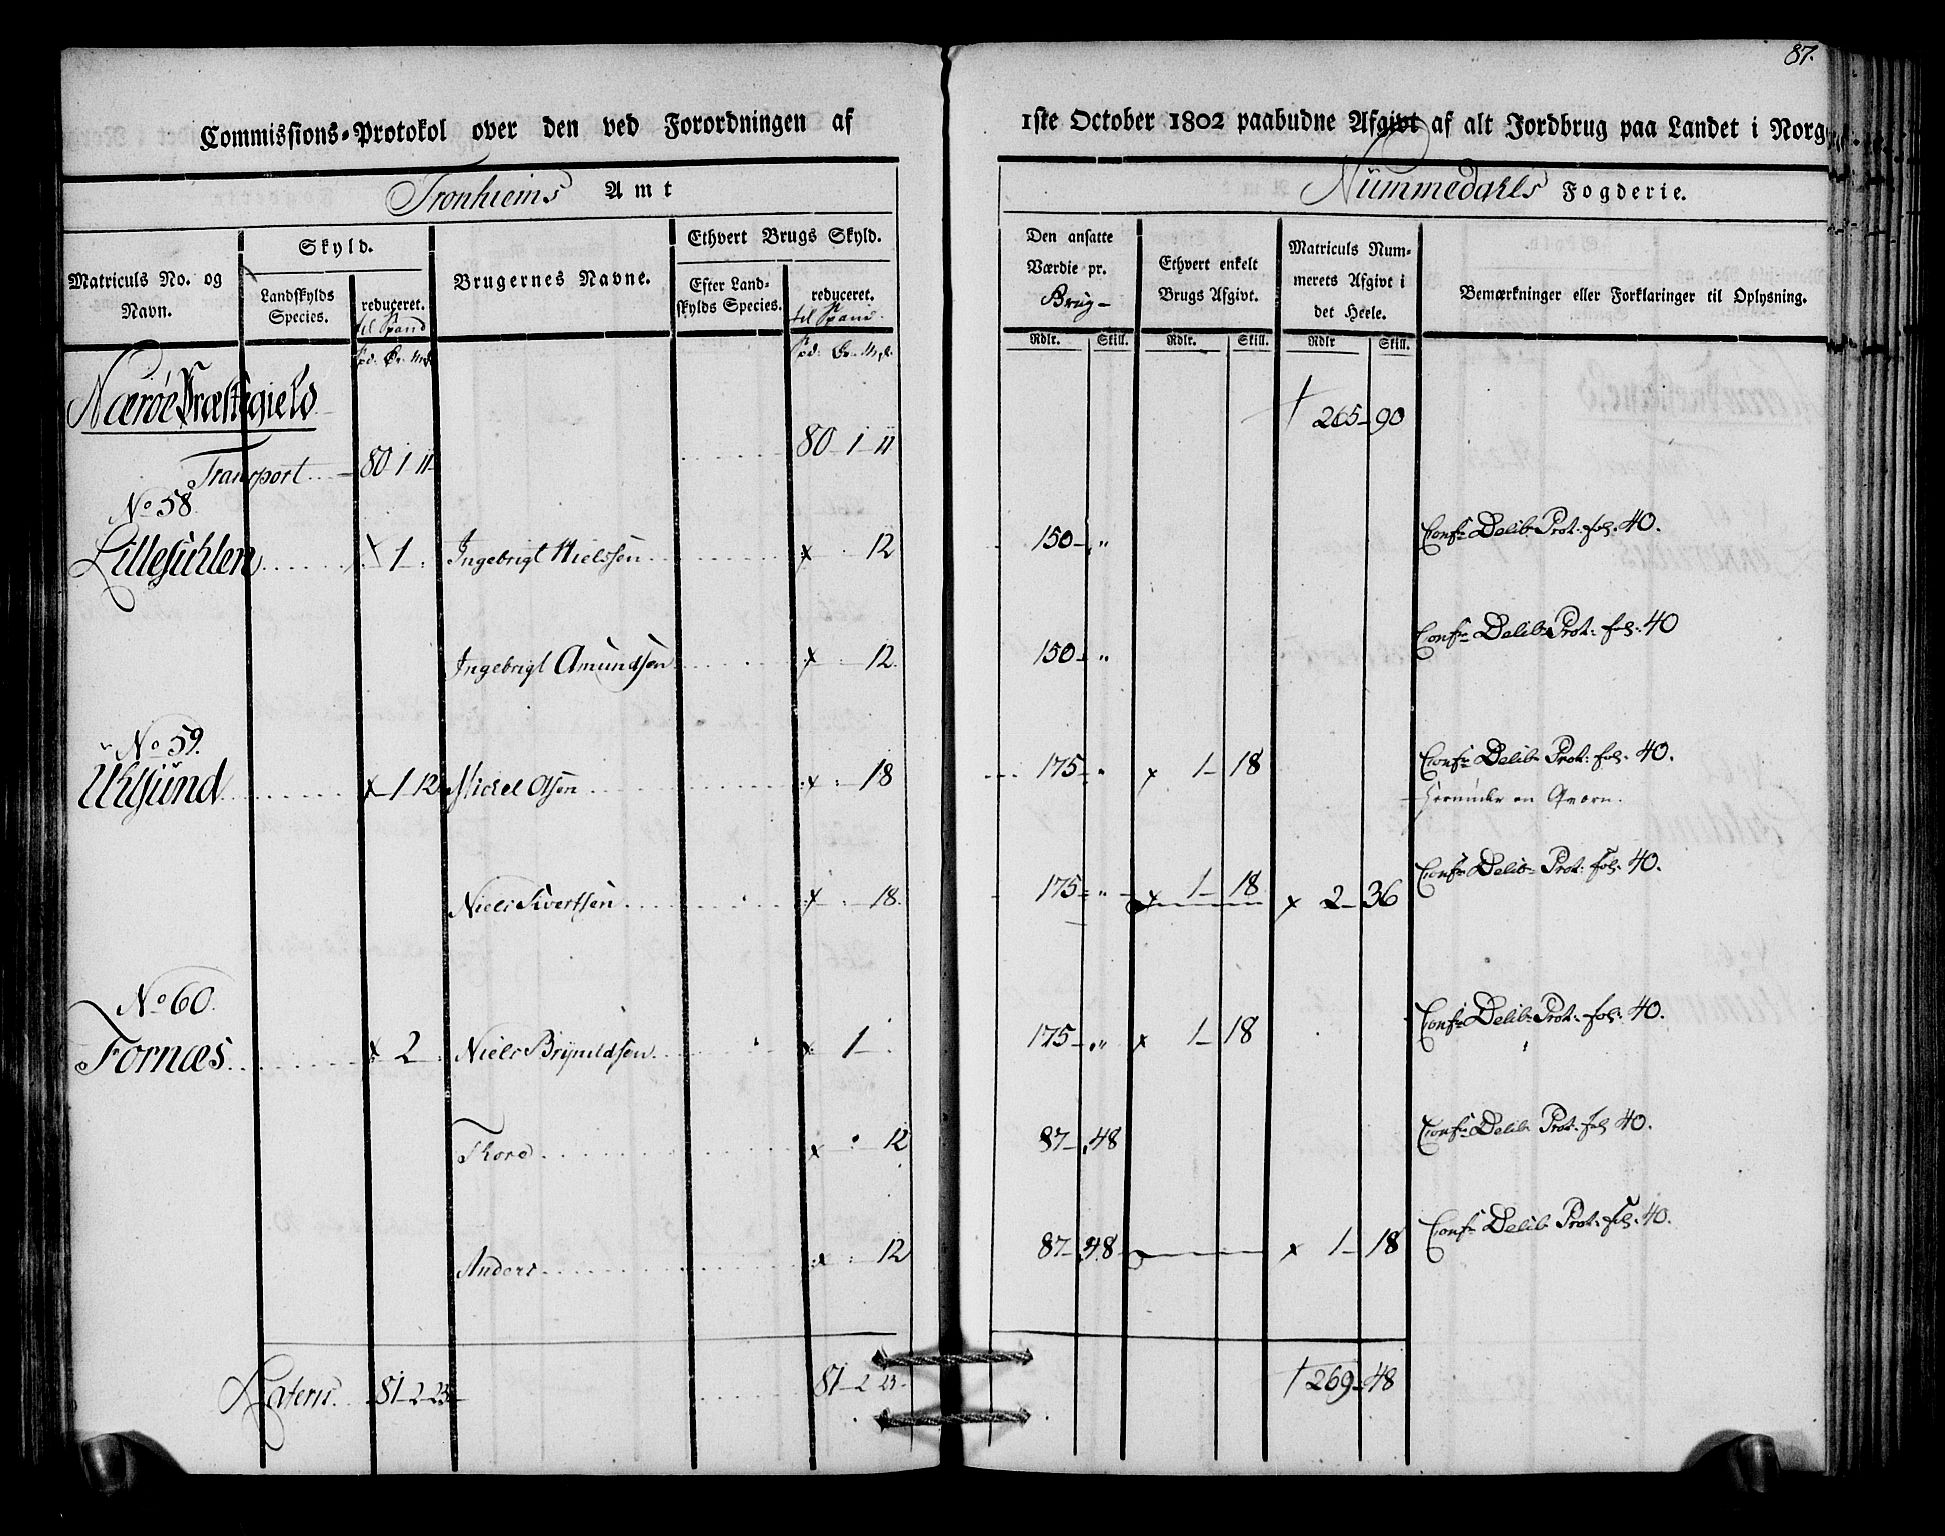 87.
Commissions-Protokol over den ved Forordningen af 1ste October 1802 paabudne Afgivt af alt Jordbrug paa Landet i Norg
Tronhiems Amt
Nümmedahls Fogderie.
Matriculs No. og Navn.
Skyld.
Landskylds Species.
reduceret.
til Spand
Brugernes Navne.
Ethvert Brugs Skyld.
Efter Landskylds Species.
reduceret.
til Spand.
Den ansatte Værdie pr.
Brug
Ethvert enkelt Brugs Afgivt.
Matriculs Nummerets Afgivt i det Heele.
Bemærkninger eller Forklaringer til Oplysning.
Rdlr. Skill. Rdlr. Skill. Rdlr Skill.
Nærøe Præstegield
Transport 80 1 11 80 1 11 265 90
No 58.
Lillesühlen x 1 Ingebrigt Nielssen x 12 150 " Confr Delib Prot: fol: 40.
Ingebrigt Amundsen x 12. 150 " Confr Delib Prot: fol: 40
No 59.
Ursund x 1 12 Mickel Olsen x 18 175 " x 1 18 Confr Delib Prot: fol: 40.
herunder en Qværn.
Niels Sivertsen x 18. 175 " x 1 18 x 2 36 Confr Delib Prot: fol: 40.
No 60.
Fornæs x 2 Niels Brynildsen x 1 175 " x 1 18 Confr Delib Prot: fol: 40.
Thore x 12 87 48 Confr Delib Prot: fol 40.
Anders x 12 87 48 x 1 18 Confr Delib Prot: fol: 40.
Lateris 81 2 23 81 2 23 269 48